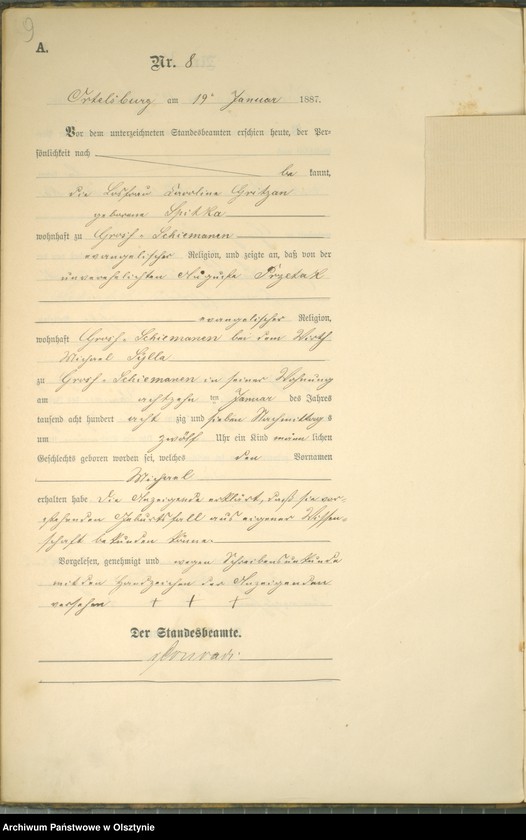 9
A.
Nr. 8
Ortelsburg am 19n Januar 1887.
Vor dem unterzeichneten Standesbeamten erschien heute, der Per-
sönlichkeit nach
be kannt,
die Losfrau Caroline Gritzan
geborene Spitzka
wohnhaft zu Groß-Schiemanen
evangelischer Religion, und zeigte an, daß von der
unverehelichten Auguste Przetak
evangelischer Religion,
wohnhaft Groß-Schiemanen bei dem Wirth
Michael Sylla
zu Groß-Schiemanen in seiner Wohnung
am achtzehn ten Januar des Jahres
tausend acht hundert acht zig und sieben Nachmittags
um zwölf Uhr ein Kind männ lichen
Geschlechts geboren worden sei, welches den Vornamen
Michael
erhalten habe Die Anzeigende erklärt, daß sie vor-
stehenden Geburtsfall aus eigener Wissen-
schaft bekunden könne.
Vorgelesen, genehmigt und wegen Schreibensunkunde
mit den Handzeichen der Anzeigenden
versehen + + +
Der Standesbeamte.
Archiwum Państwowe w Olsztynie